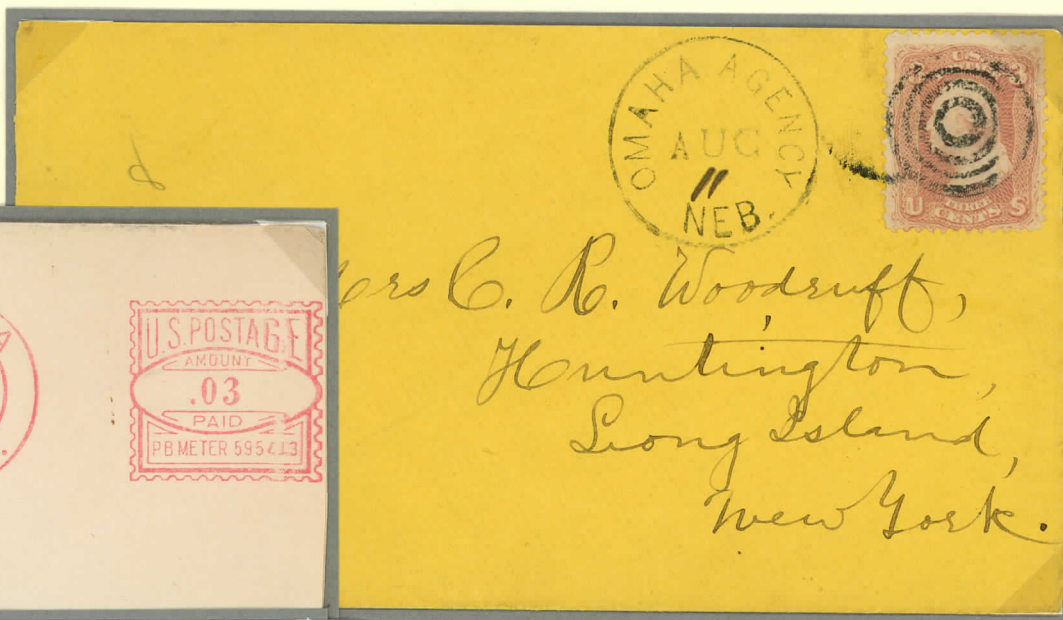 OMAHA AGENCY
AUG
11
NEB.
U.S.
THREE
U CENTS S
rs C. R. Woodruff,
Huntington,
Long Island,
New York.
U.S. POSTAGE
AMOUNT
.03
PAID
P.B. METER
A